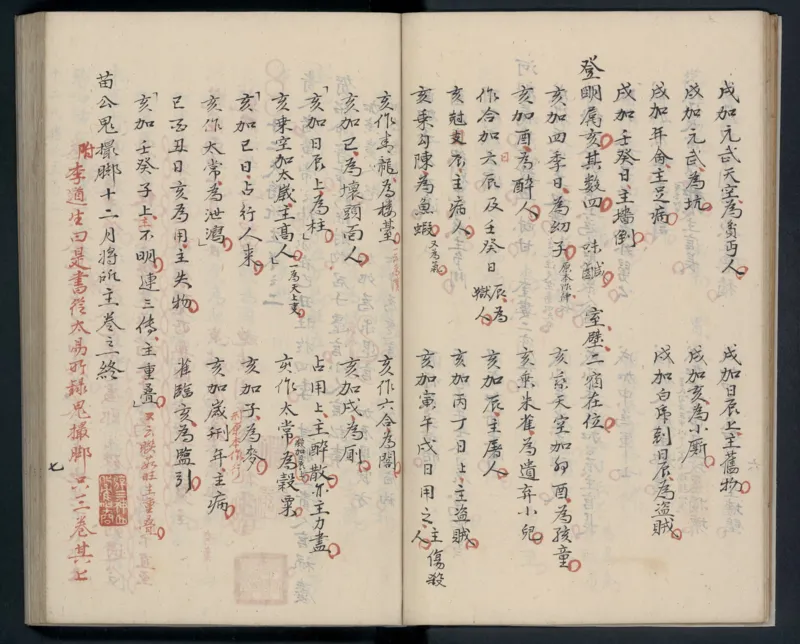 戌加元武天空為貧丐人　戌加日辰上主舊物
戌加元武為坑　戌加亥為小厠
戌加年命主足病　戌加白虎到日辰為盗賊
戌加壬癸日主墻倒
登明属亥其数四　味鹹　室壁二宿在位
亥加四季日為幼子　亥乘天空加卯酉為孩童
亥加酉為醉人　亥乘朱雀為遺弃小兒
作合加六辰及壬癸日辰為獄人　亥加辰主屠人
亥冠支辰主病人　亥加丙丁日上主盗賊
亥乘勾陳為魚蝦　亥加寅午戌日用之主傷殺人
亥作青龍為樓基　亥作六合為閣
亥加巳為壞頭面人　亥加戌為厠
亥加日辰上為柱　占用上主醉散亦主力盡
亥乗空加太歲主髙人一為天上吏　亥作太常為穀粟
亥加巳日占行人來　亥加子為麥
亥作太常為泄瀉　亥加歲刑年主病
巳酉丑日亥為用主失物　雀臨亥為監引
亥加壬癸子上主不明連三傳主重疊
苗公鬼撮脚十二月將所主卷之終
附李道生曰是書從太易所録鬼撮脚只三卷其七
七